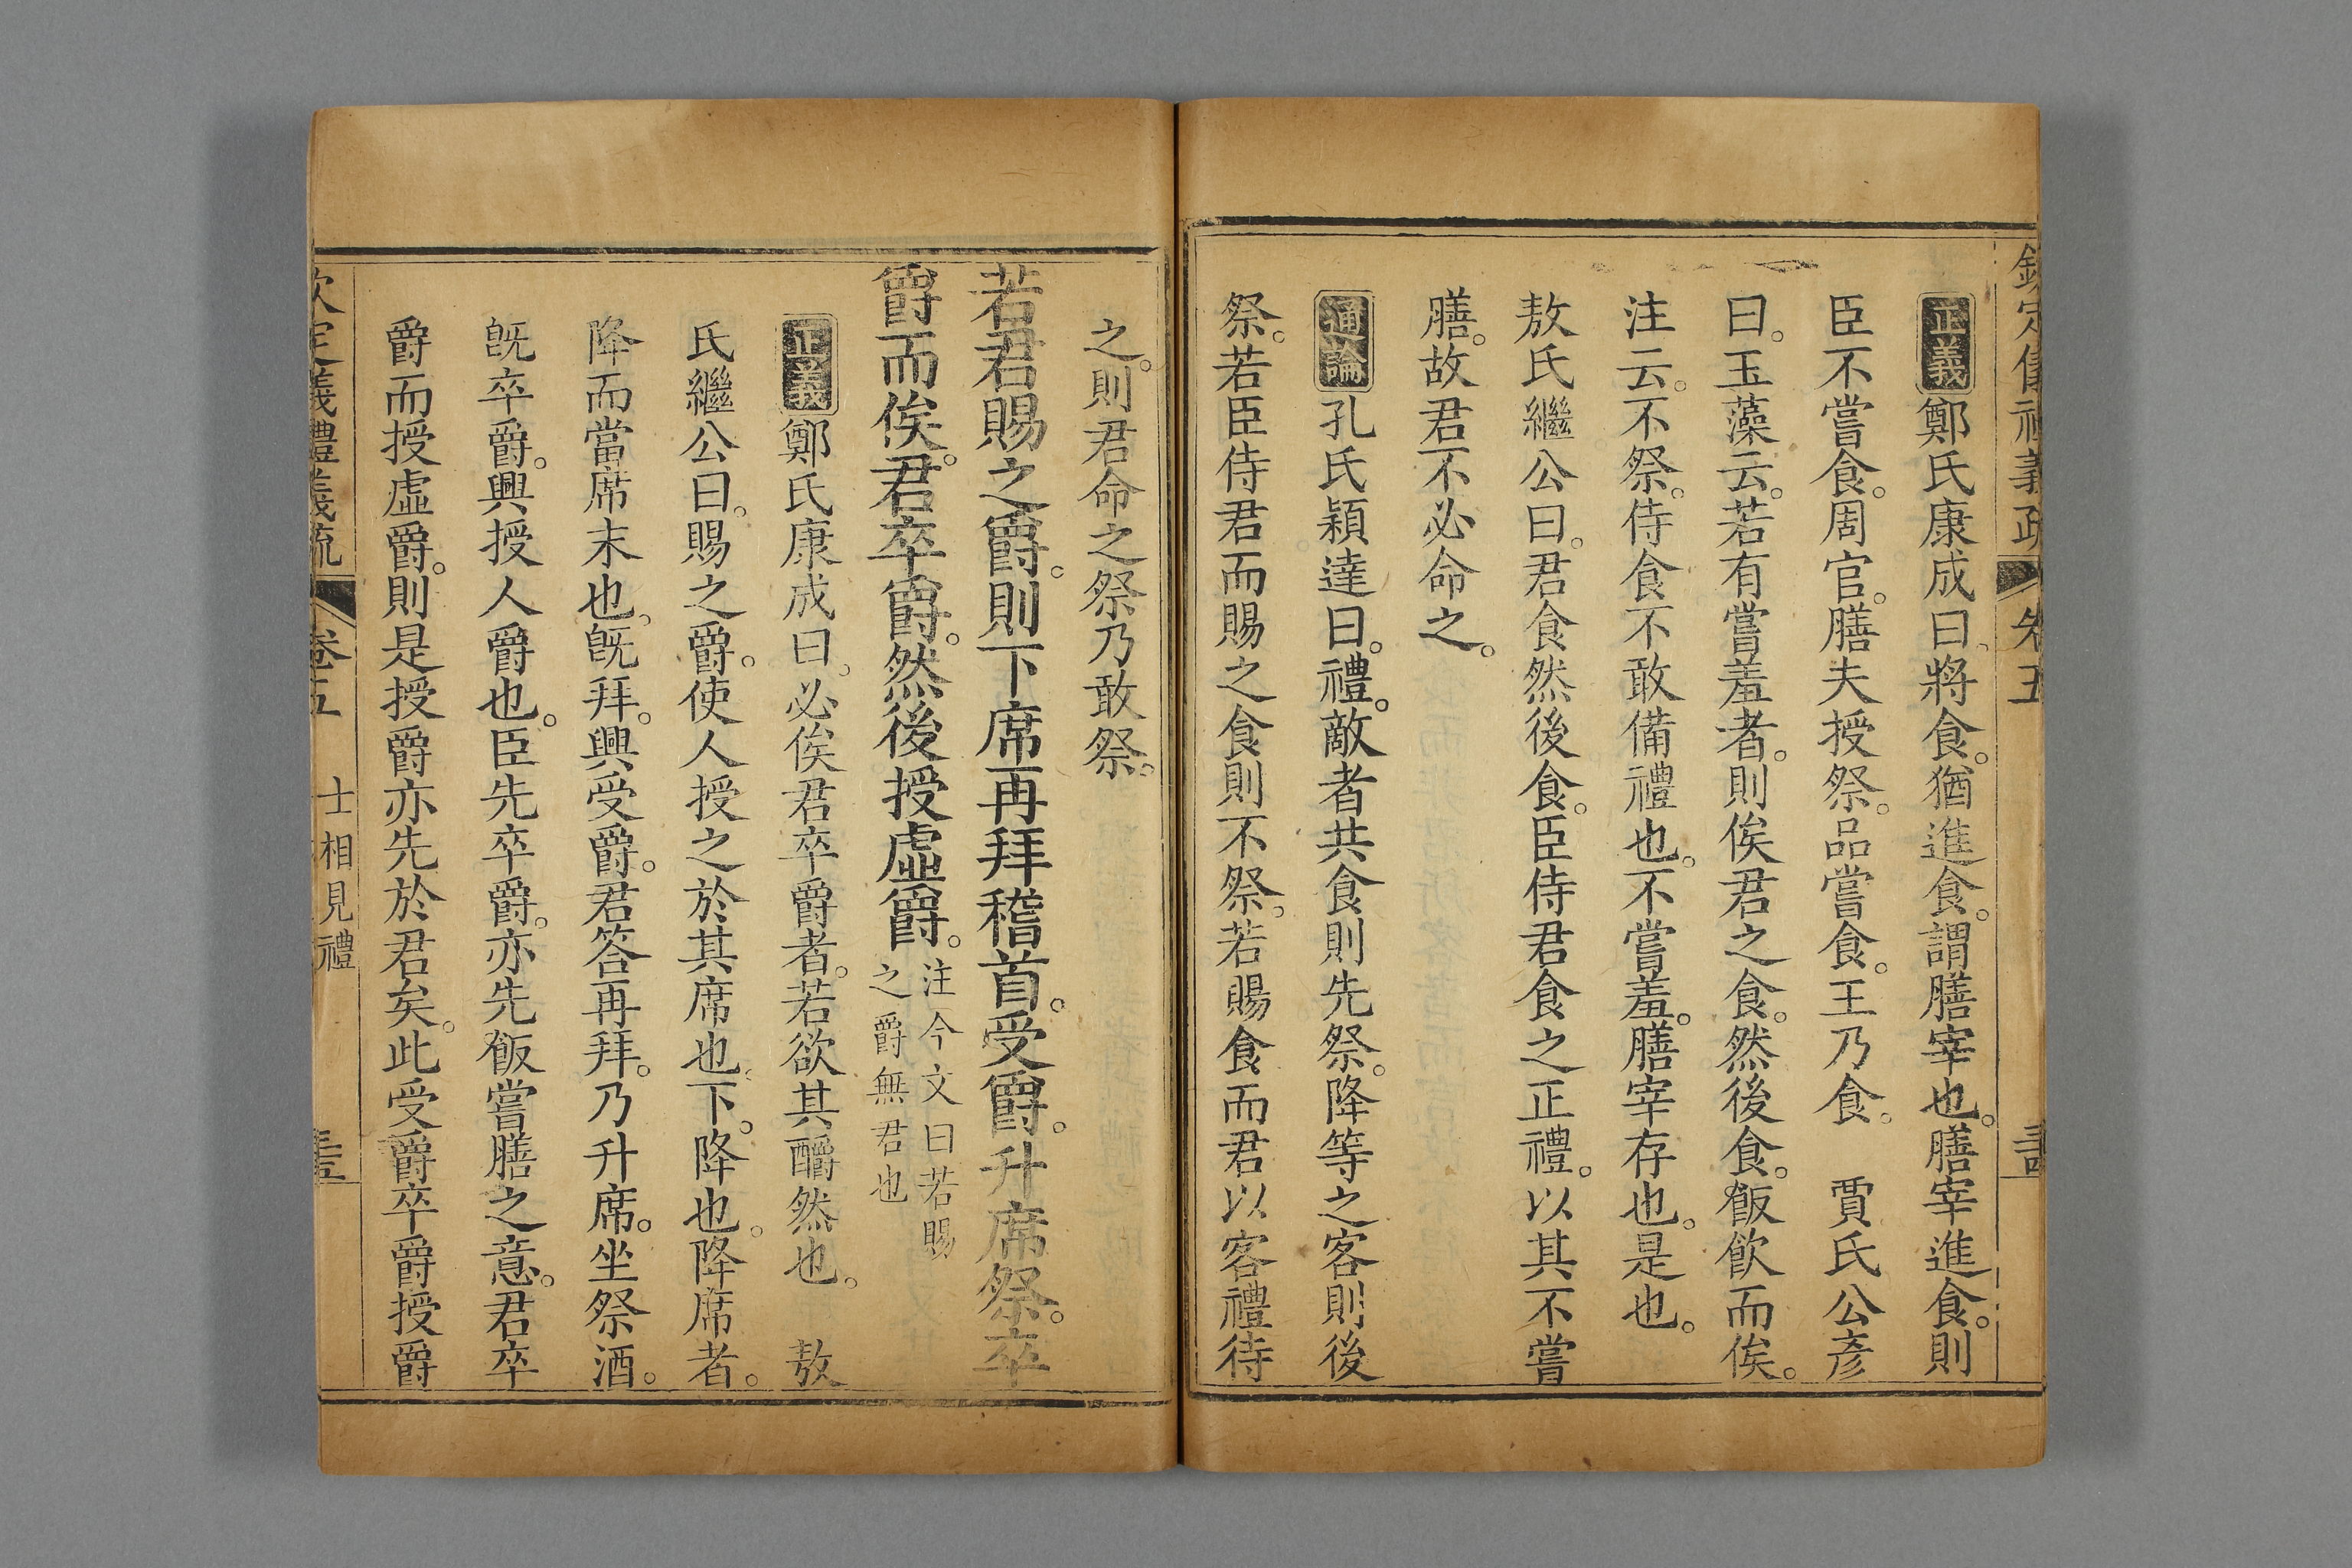 欽定儀禮義疏 卷五
正義鄭氏康成曰將食。猶進食。謂膳宰也。膳宰進食。則
臣不嘗食。周官。膳夫授祭。品嘗食。王乃食。 賈氏公彥
曰。玉藻云。若有嘗羞者。則俟君之食。然後食。飯飲而俟。
注云。不祭。侍食不敢備禮也。不嘗羞。膳宰存也。是也。
敖氏繼公曰。君食然後食。臣侍君食之正禮。以其不嘗
膳。故君不必命之。
通論孔氏穎達曰。禮。敵者共食則先祭。降等之客則後
祭。若臣侍君而賜之食則不祭。若賜食而君以客禮待
之。則君命之祭乃敢祭。
若君賜之爵。則下席再拜稽首。受爵。升席祭。卒
爵而俟。君卒爵。然後授虛爵。注今文曰若賜之爵無君也
正義鄭氏康成曰。必俟君卒爵者。若欲其釂然也。 敖
氏繼公曰。賜之爵。使人授之於其席也。下。降也。降席者。
降而當席末也。旣拜。興受爵。君答再拜。乃升席。坐祭酒。
旣卒爵。興授人爵也。臣先卒爵。亦先飯嘗膳之意。君卒
爵而授虛爵。則是授爵亦先於君矣。此受爵卒爵授爵
欽定儀禮義疏 卷五 士相見禮